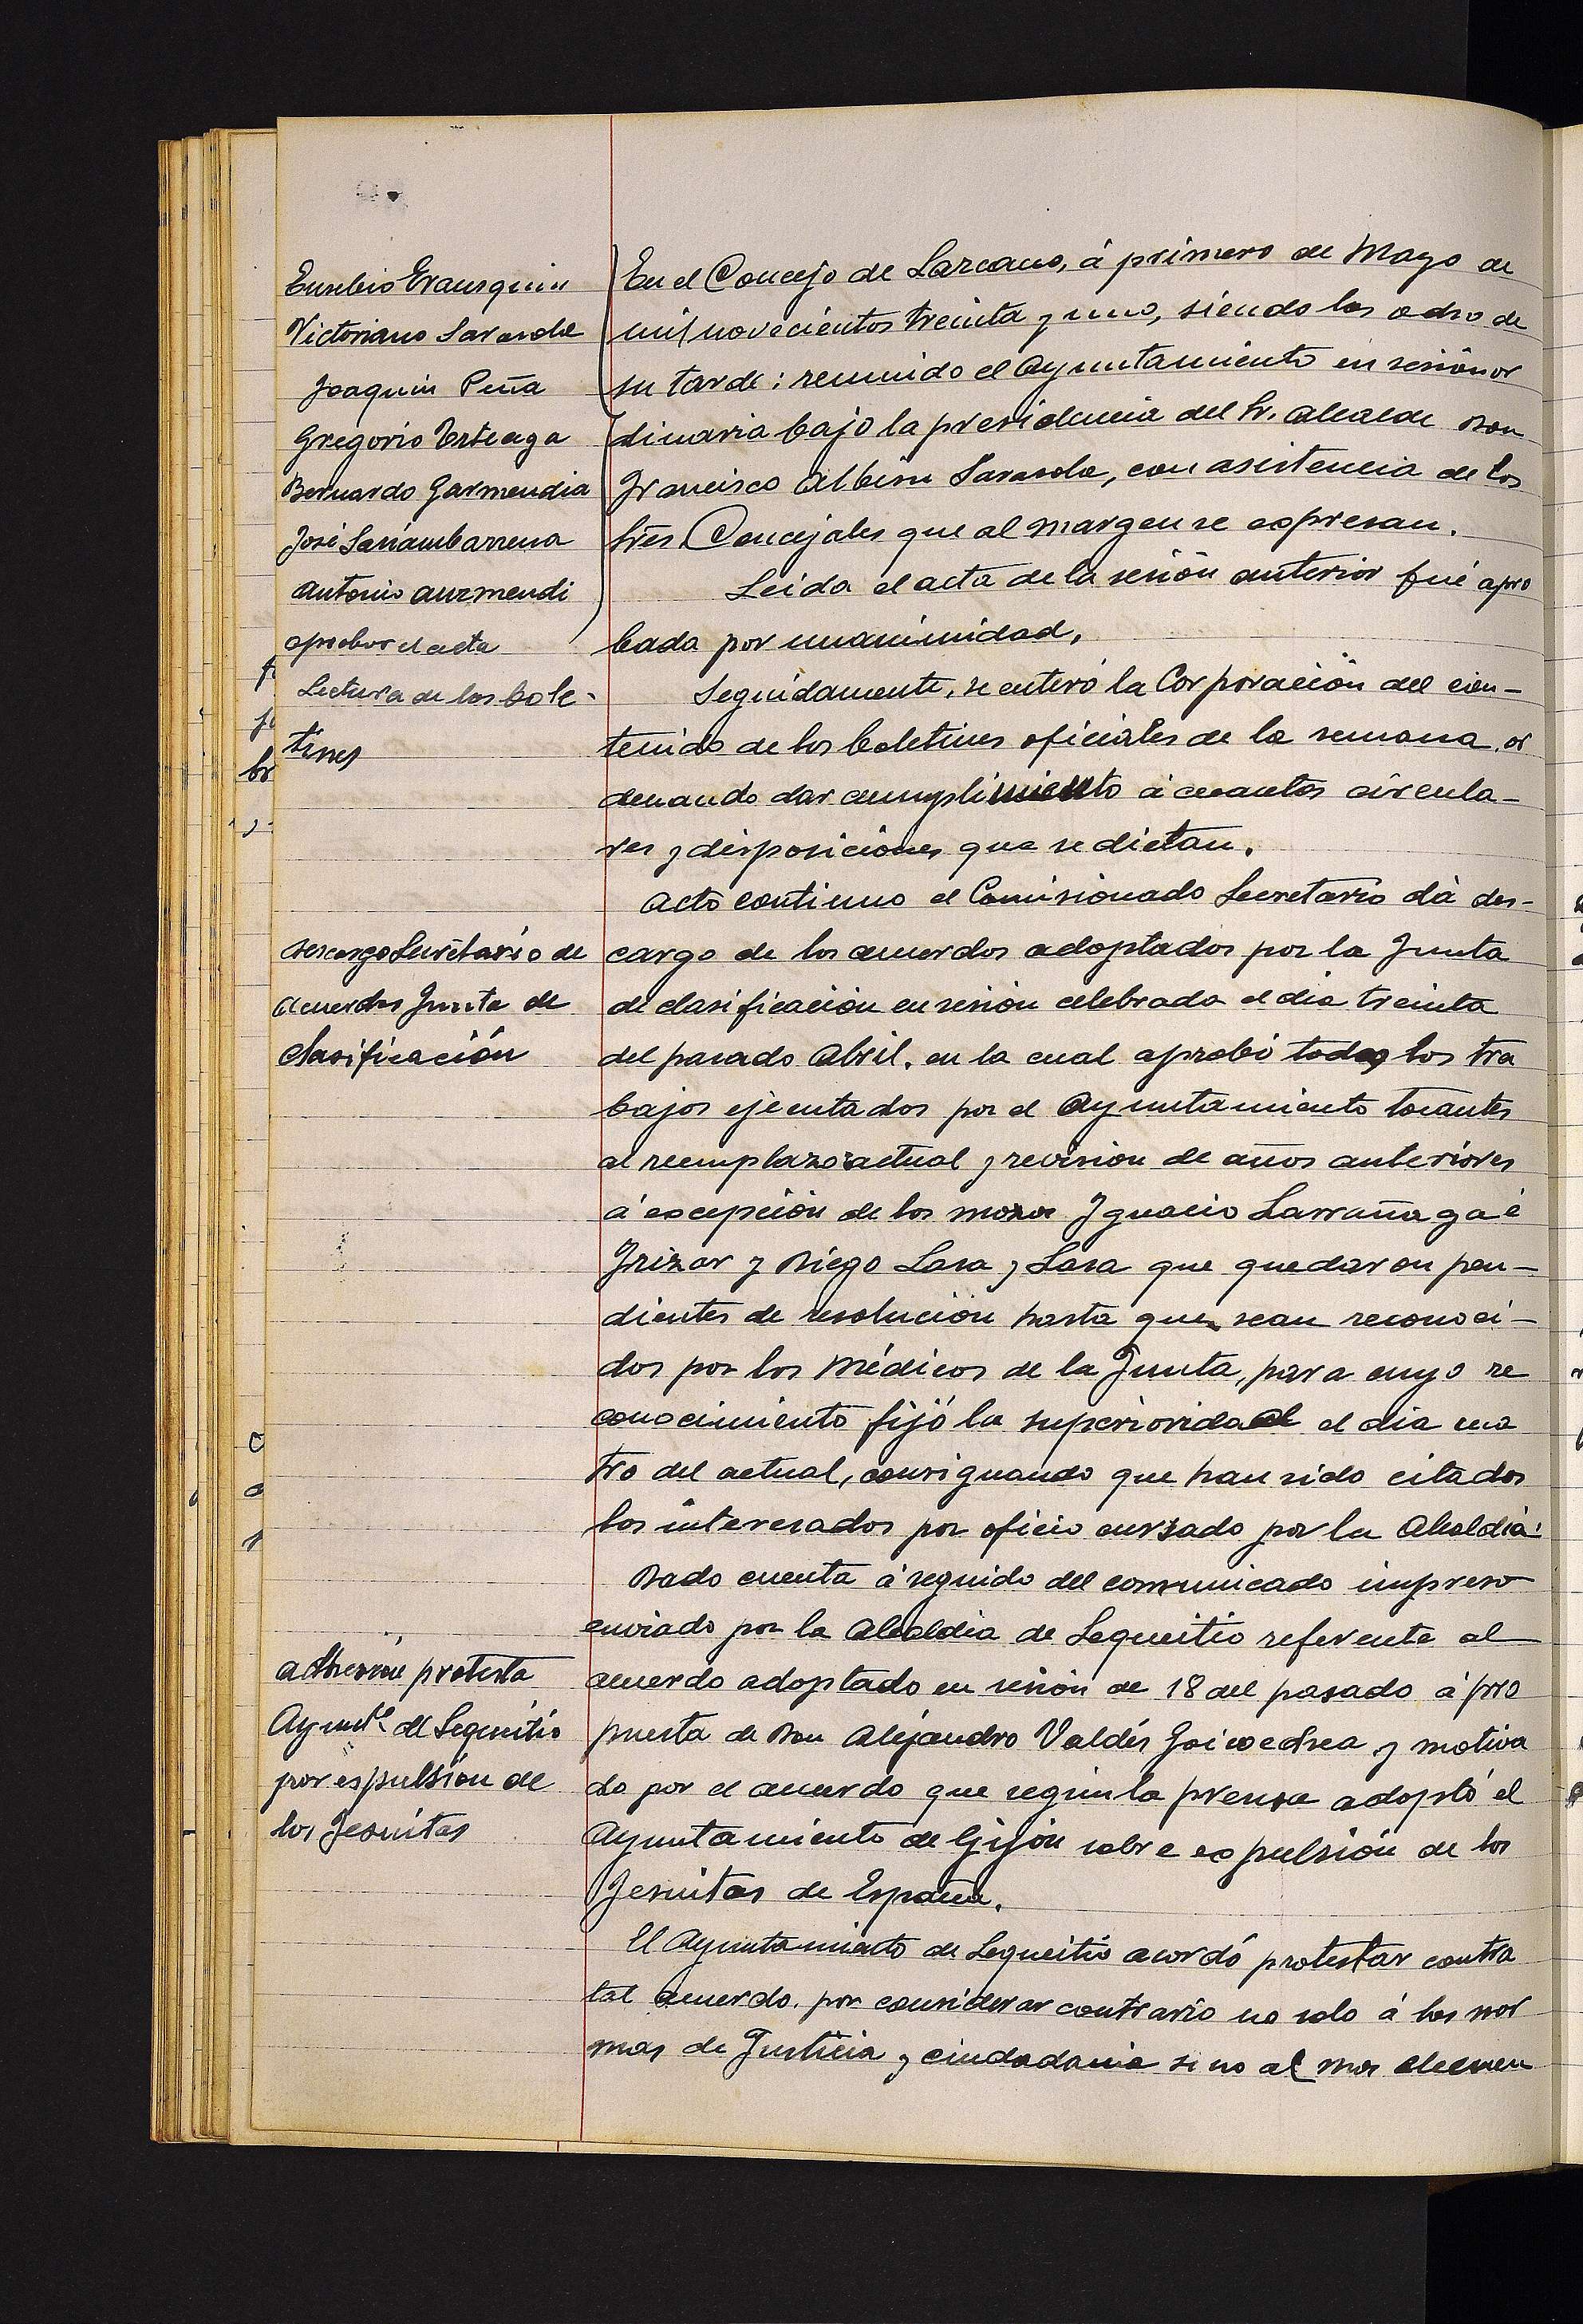 Eusebio Erausquin
Victoriano Sarasola
Joaquin Peña
Gregorio Urteaga
Bernardo Garmendia
José Sariambarrena
Antonio Auzmendi
aprobar el acta
Lectura de los bole-
tines
descargo Secretario de
acuerdos Junta de
clasificación
adhesión protesta
Ayuntº de Lequeitio
por espulsion de
los Jesuitas
En el Concejo de Lazcano, á primero de Mayo de
mil novecientos treinta y uno, siendo las ocho de
su tarde: reunido el Ayuntamiento en sesión or
dinaria bajo la presidencia del Sr. Alcalde Don
Francisco Albisu Sarasola, con asistencia de los
Sres. Concejales que al margen se espresan.
Leida el acta de la sesión anterior fué apro
bada por unanimidad.
Seguidamente, se enteró la Corporación del con-
tenido de los boletines oficiales de la semana, or
denando dar cumplimiento á cuantas circula-
res y disposiciones que se dictan.
Acto continuo el Comisionado Secretario dá des-
cargo de los acuerdos adoptados por la Junta
de clasificación en sesión celebrada el dia treinta
del pasado Abril, en la cual aprobó todos los tra
bajos ejecutados por el Ayuntamiento tocantes
al reemplazo actual y revision de años anteriores
á escepción de los mozos Ignacio Larrañaga é
Irizar y Diego Lasa y Lasa que quedaron pen-
dientes de resolución hasta que sean reconoci-
dos por los Médicos de la Junta, para cuyo re
conocimiento fijó la superioridad el dia cua
tro del actual, consignando que han sido citados
los interesados por oficio cursado por la Alcaldia.
Dado cuenta á seguido del comunicado impreso
enviado por la Alcaldia de Lequeitio referente al
acuerdo adoptado en sesión de 18 del pasado á pro
puesta de Don Alejandro Valdés Goicoechea y motiva
do por el acuerdo que segun la prensa adoptó el
Ayuntamiento de Gijón sobre espulsión de los
Jesuitas de España.
El Ayuntamiento de Lequeitio acordó protestar contra
tal acuerdo, por considerar contrario no solo á las nor
mas de Justicia y ciudadania si no al mas elemen